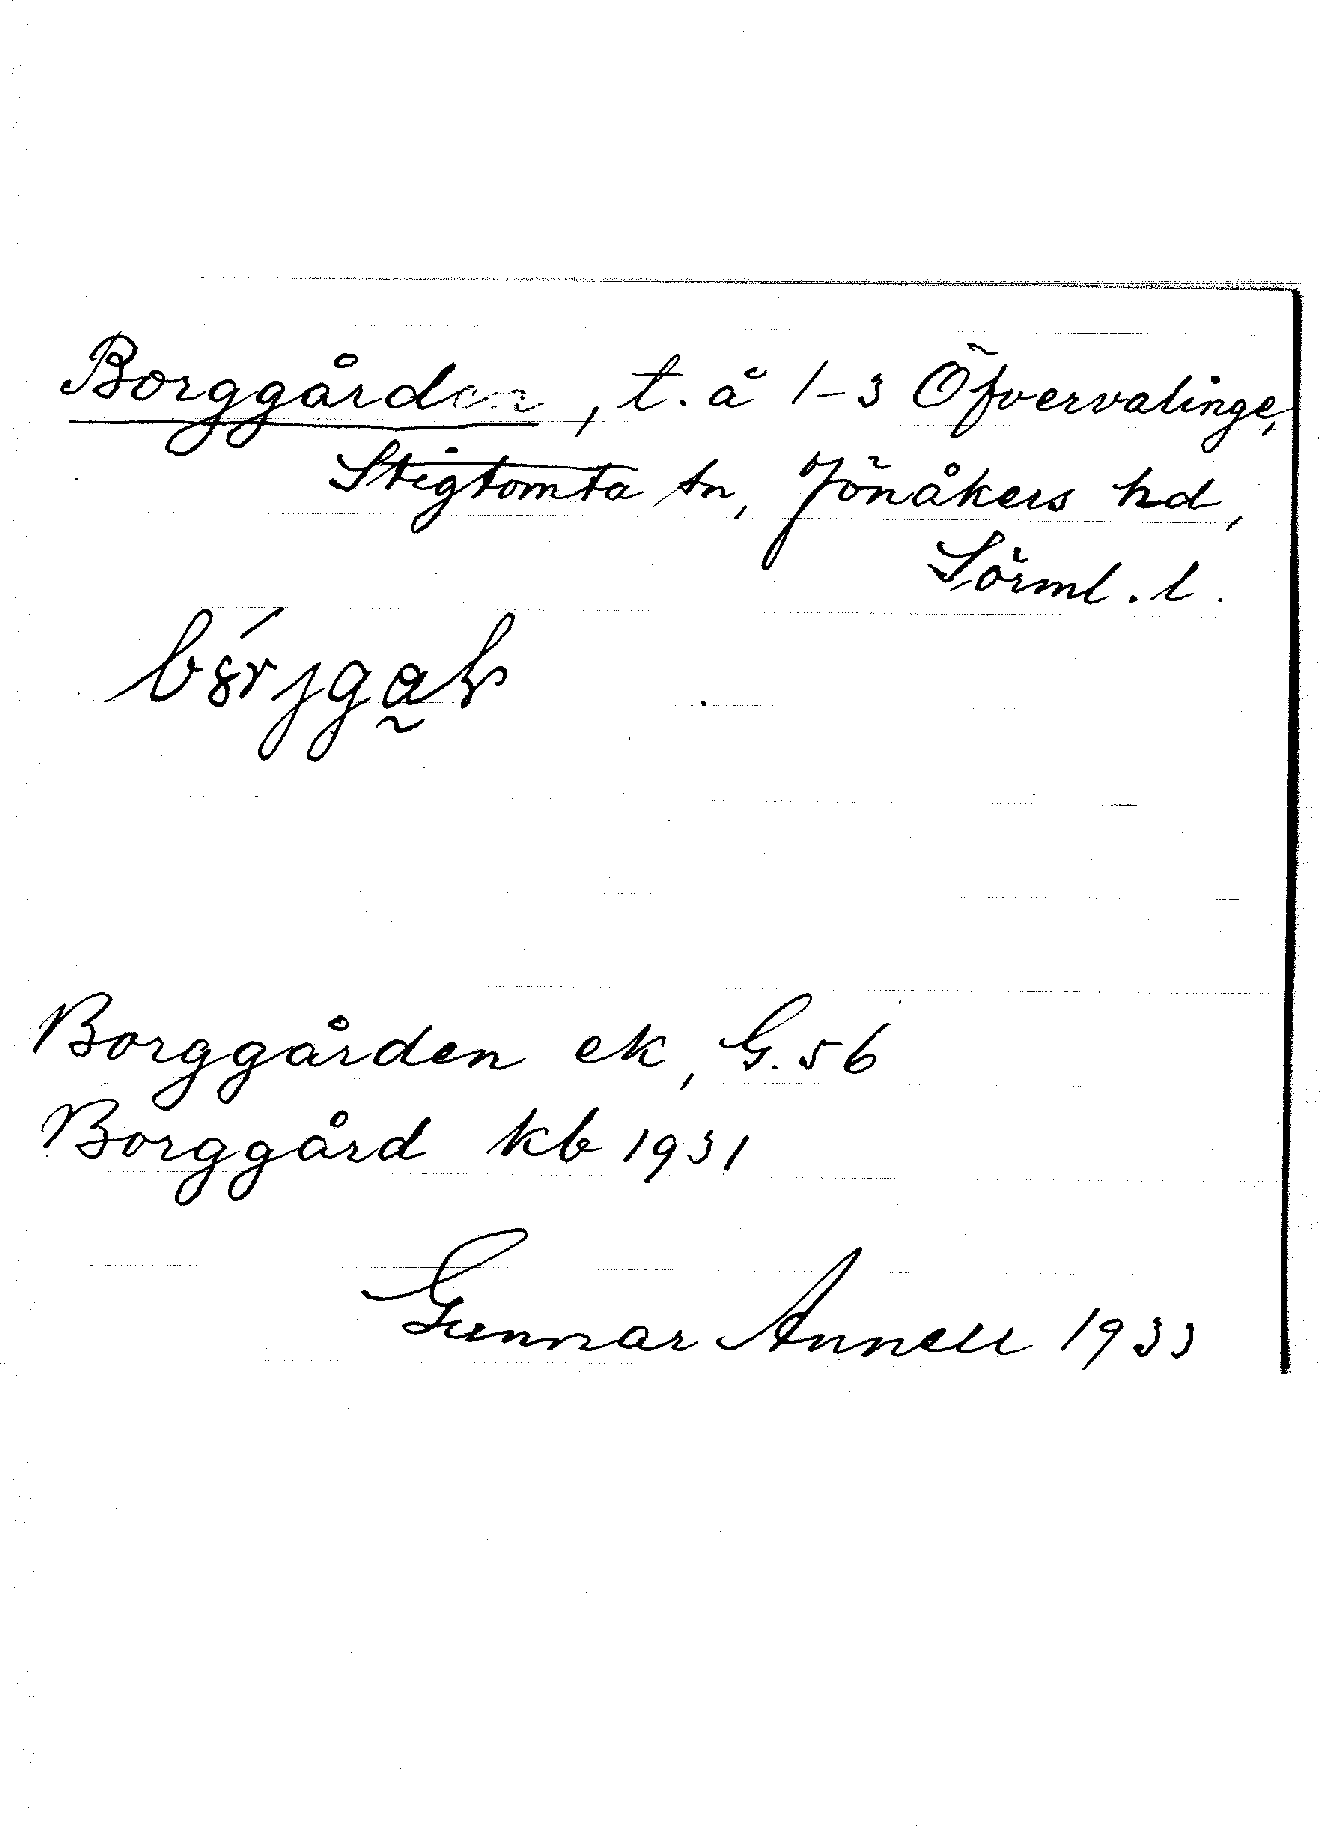 Borggården, t. å 1-3 Öfvervalinge,
Stigtomta sn, Jönåkers hd,
Sörml. l.
Borggården ek, G. 56
Borggård kb 1931
Gunnar Annell 1933